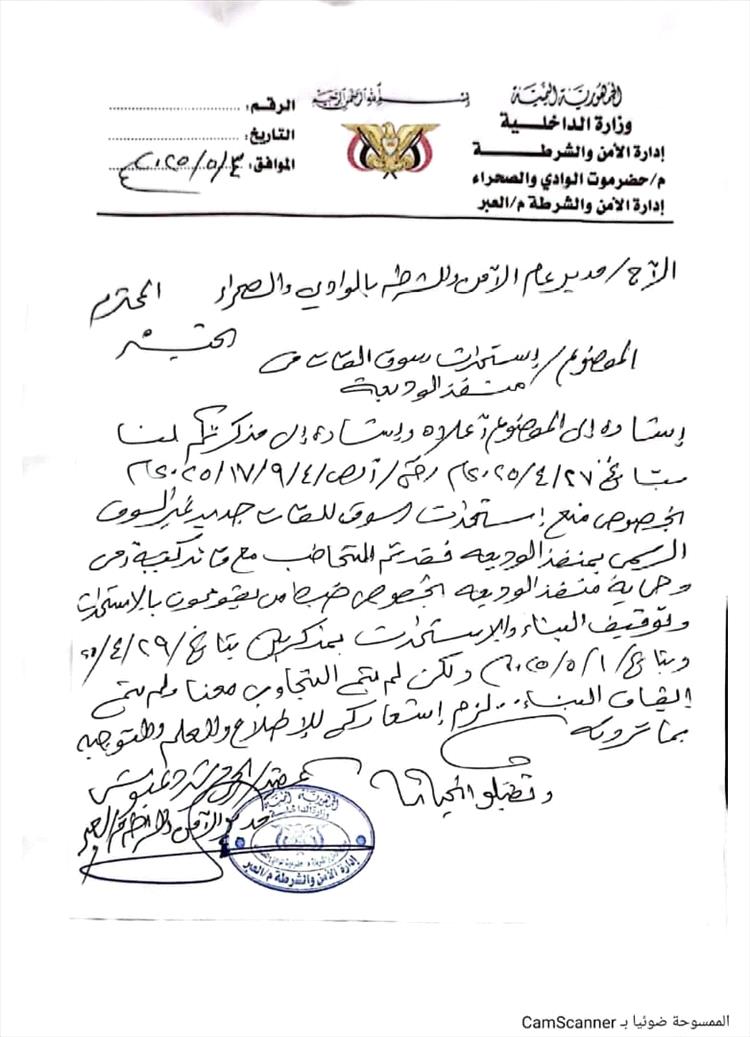 الجمهورية اليمنية
وزارة الداخلية
إدارة الأمن والشرطة
م/حضرموت الوادي والصحراء
إدارة الأمن والشرطة م/العبر
بسم الله الرحمن الرحيم
الرقم:
التاريخ:
الموافق: ٢٠٢٥/٥/٣
الأخ/ مدير عام الأمن والشرطة بالوادي والصحراء المحترم
الموضوع/ إستحداث سوق القات في
منفذ الوديعة
إستناده إلى الموضوع أعلاه وإستناده إلى مذكرتكم لنا
بتاريخ ٢٠٢٥/٤/٢٧م رقم/ ٢٠٢٥/١٧/٩/٤م
الخصوص منع إستحداث اسوق للقات جديد غير السوق
الرسمي بمنفذ الوديعه فقد تم التخاطب مع قائد كتيبة أمن
وحماية منفذ الوديعه الخصوص ضبط من يقومون بالاستحداث
وتوقيف البناء والاستحداث بمذكرتين بتاريخ ٤/٢٩/
وبتاريخ ٢٠٢٥/٥/١م ولكن لم يتم التجاوب معنا ولم يتم
إيقاف البناء.. لزم إشعاركم للإطلاع والعلم والتوجيه
بما ترونه
وتقبلو تحياتنا
مدير الأمن والشرطة م العبر
الجمهورية اليمنية
وزارة الداخلية
إدارة الأمن والشرطة م/العبر
الممسوحة ضوئيا بـ CamScanner